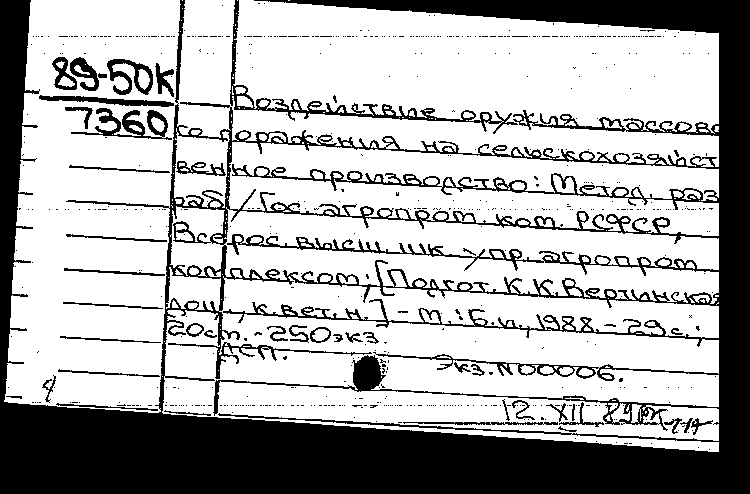 89-50К
7360
Воздействие оружия массово
го поражения на сельскохозяйст
венное производство: Метод. раз
раб / Гос. агропром. ком. РСФСР,
Всерос. высш. шк. упр. агропром.
комплексом; [Подгот. К.К.Вертинская
доц., к.вет.н.] - М.: Б.и., 1988. - 29 с.;
20 см. - 250 экз.
ДСП.
Экз. N00006.
12. XII 89